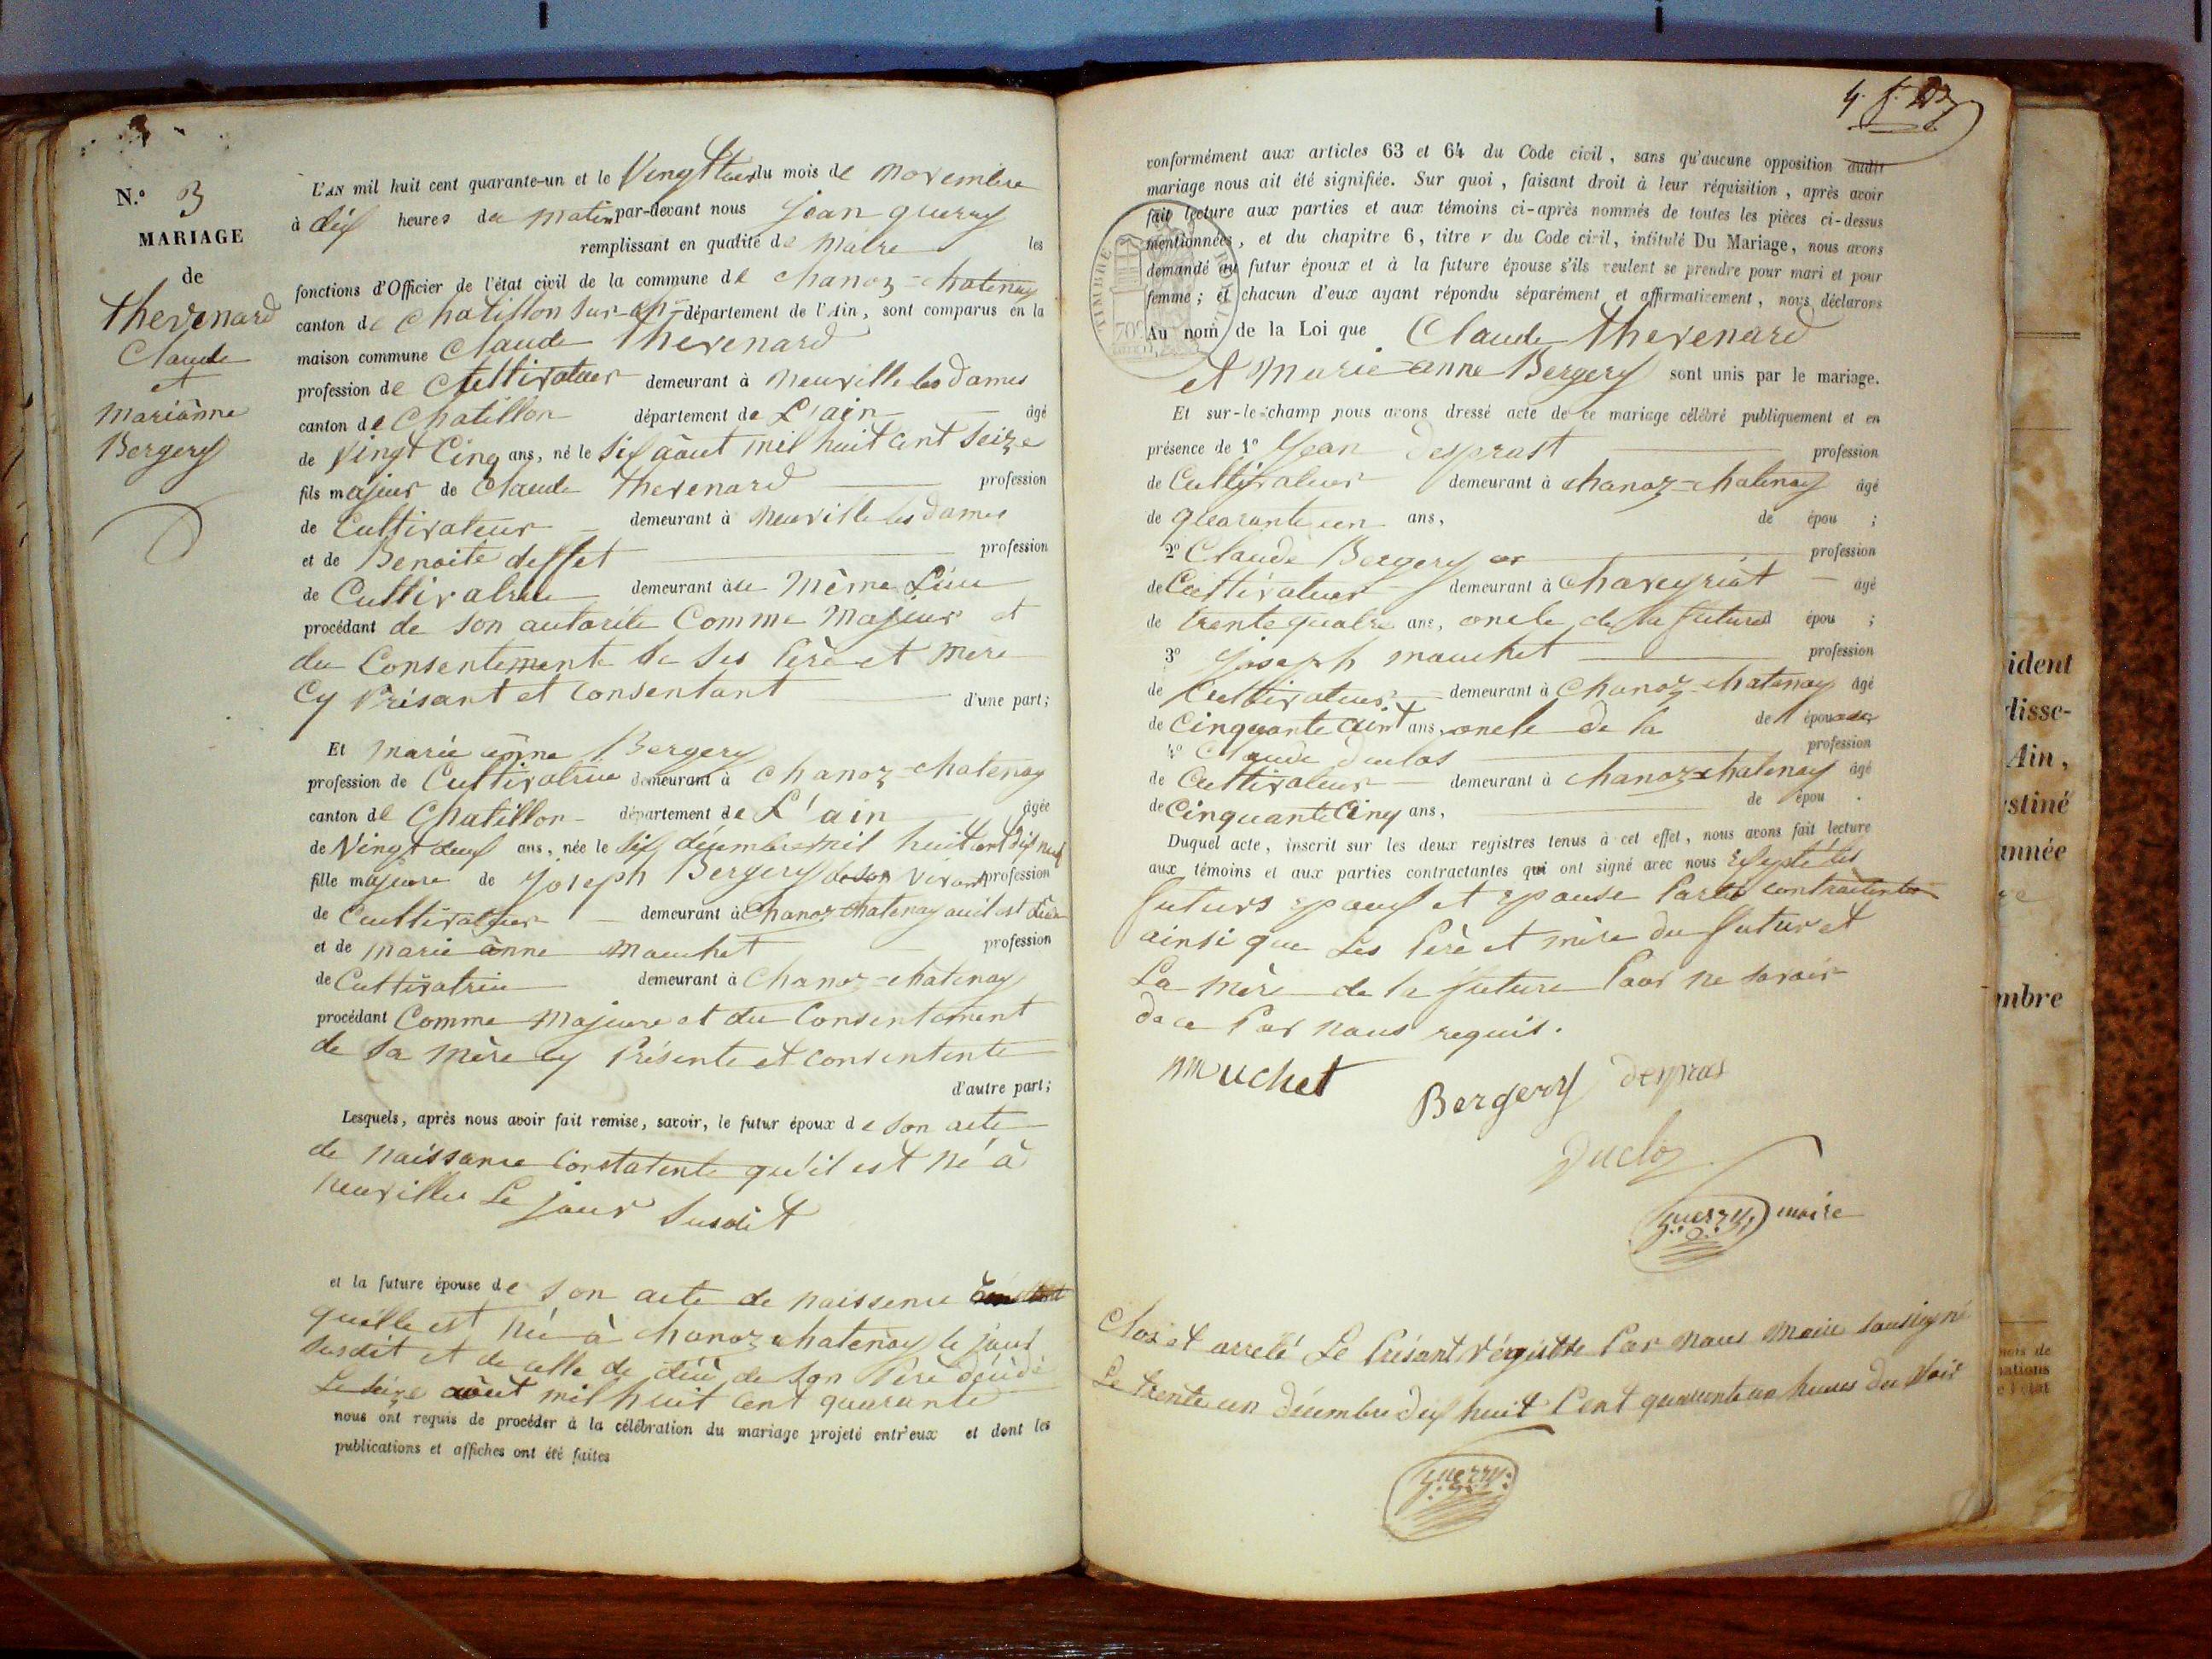 N.º 3
MARIAGE
de
thevenard
Claude
et
marianne
Bergery
L'AN mil huit cent quarante-un et le Vingt du mois de novembre
à dix heures du matin par-devant nous jean guerry
remplissant en qualité de maire les
fonctions d'Officier de l'état civil de la commune de chanoz-chatenay
canton de Chatillon sur département de l'Ain, sont comparus en la
maison commune Claude thevenard
profession de Cultivateur demeurant à neuville les Dames
canton de Chatillon département de L'ain âgé
de Vingt Cinq ans, né le Six août mil huit cent Seize
fils majeur de Claude thevenard profession
de Cultivateur demeurant à neuville les Dames
et de Benoite profession
de Cultivatrice demeurant au Même Lieu
procédant de son autorite Comme Majeur et
du Consentement de Ses Père et mere
Cy Présant et Consentant d'une part;
Et marie anne Bergery
profession de Cultivatrice demeurant à Chanoz-chatenay
canton de Chatillon département de L'ain âgée
de Vingt deux ans, née le Six décembre mil huit cent dix neuf
fille majeure de joseph Bergery de son Vivant profession
de Cultivateur demeurant à Chanoz chatenay ou il est
et de marie anne mauchet profession
de Cultivatrice demeurant à Chanoz-chatenay
procédant Comme majeure et du Consentement
de Sa mère cy Présente et consentente
d'autre part;
Lesquels, après nous avoir fait remise, savoir, le futur époux de son acte
de naissance Constatente qu'il est né à
neuville Le jour Susdit
et la future épouse de Son acte de naissence
quelle est née à chanoz chatenay le jour
susdit et de celle de de Son Père décédé
Le Seize août mil huit Cent quarante
nous ont requis de procéder à la célébration du mariage projeté entr'eux et dont les
publications et affiches ont été faites
conformément aux articles 63 et 64 du Code civil, sans qu'aucune opposition audit
mariage nous ait été signifiée. Sur quoi, faisant droit à leur réquisition, après avoir
fait lecture aux parties et aux témoins ci-après nommés de toutes les pièces ci-dessus
mentionnées, et du chapitre 6, titre v du Code civil, intitulé Du Mariage, nous avons
demandé au futur époux et à la future épouse s'ils veulent se prendre pour mari et pour
femme; et chacun d'eux ayant répondu séparément et affirmativement, nous déclarons
Au nom de la Loi que Claude thevenard
et Marie anne Bergery sont unis par le mariage.
Et sur-le-champ nous avons dressé acte de ce mariage célébré publiquement et en
présence de 1º Jean desprast profession
de Cultivateur demeurant à chanoz-chatenay âgé
de quarante un ans, de épou ;
2º Claude Bergery profession
de Cultivateur demeurant à Chaveyriat âgé
de trente quatre ans, oncle de la future épou ;
3º joseph mauchet profession
de Cultivateur demeurant à Chanoz-chatenay âgé
de Cinquante ans, oncle de la de épou
4º Claude duclos profession
de Cultivateur demeurant à chanoz-chatenay âgé
de Cinquante Cinq ans, de épou .
Duquel acte, inscrit sur les deux registres tenus à cet effet, nous avons fait lecture
aux témoins et aux parties contractantes qui ont signé avec nous Exsepté les
futurs epoux et epouse Partie contractentes
ainsi que Les Père et mère du futur et
La mère de la future Pour ne savoir
de ce Par nous requis.
muchet
Bergery despras
Duclos
guerry maire
Clos et arreté Le Présant régistre Par nous Maire sousigné
Le trente un décembre dix huit Cent quarante un heures du Soir
guerry
TIMBRE ROYAL
ident
disse-
Ain,
stiné
année
mbre